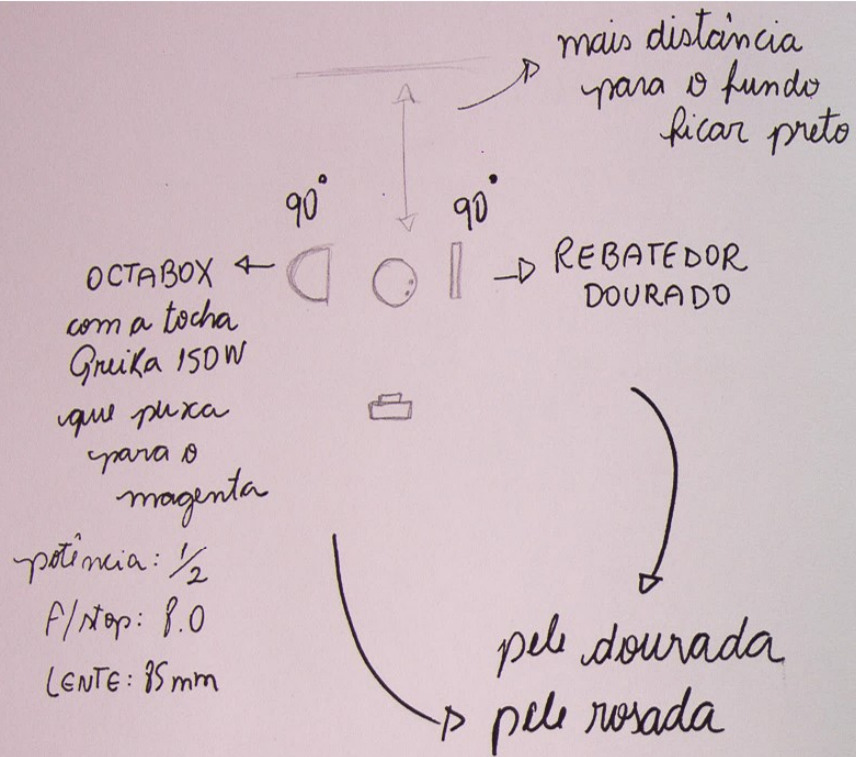 mais distância
para o fundo
ficar preto
90°
90°
OCTABOX
com a tocha
Greika 150W
que puxa
para o
magenta
REBATEDOR
DOURADO
potência: 1/2
f/stop: 8.0
LENTE: 85mm
pele dourada
pele rosada